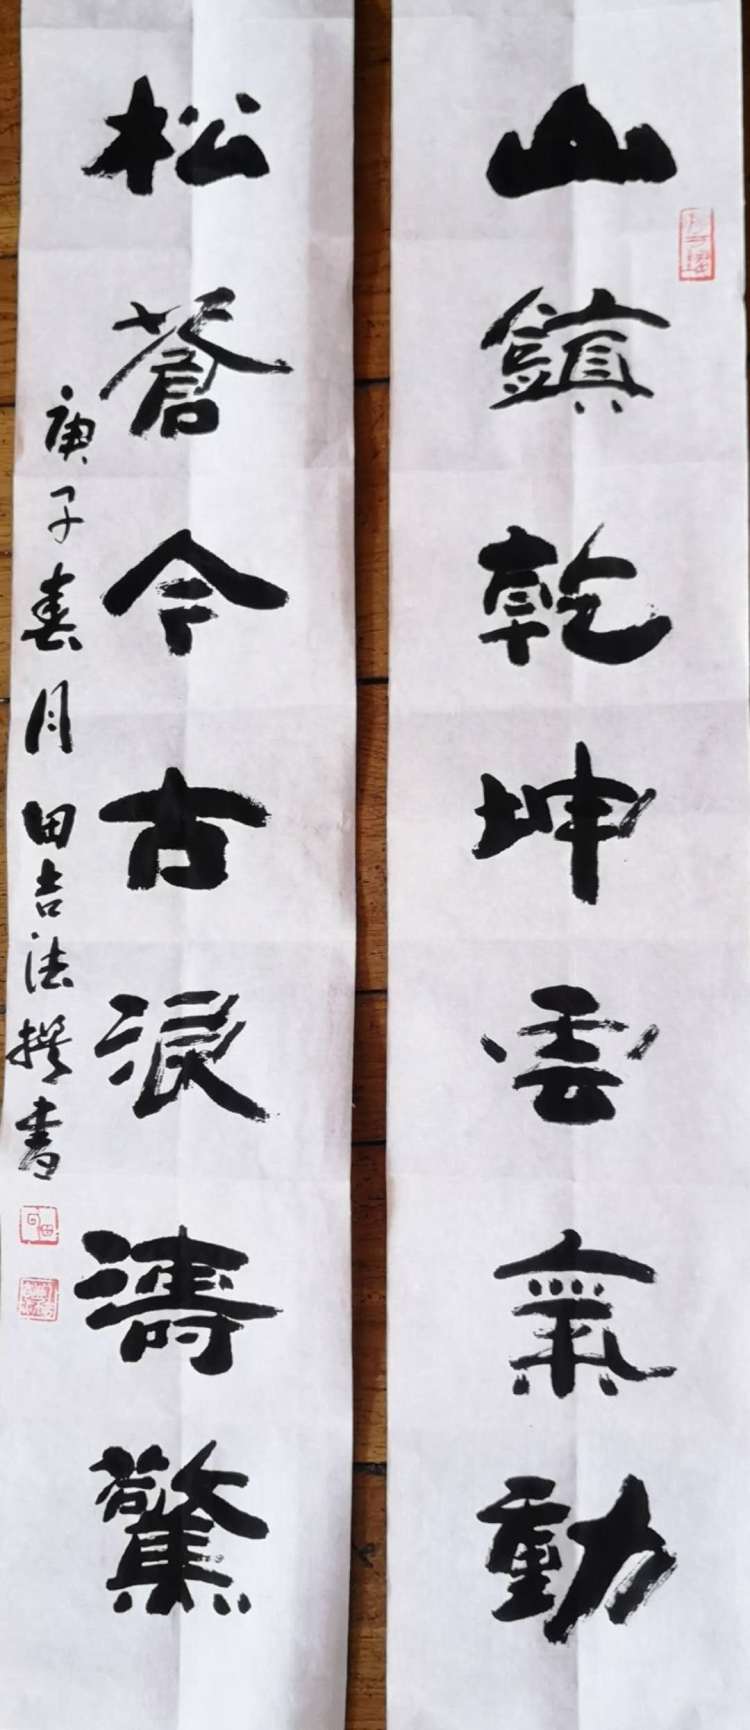 山鎮乾坤雲氣動
松蒼今古浪濤驚
庚子春月田吉法撰書